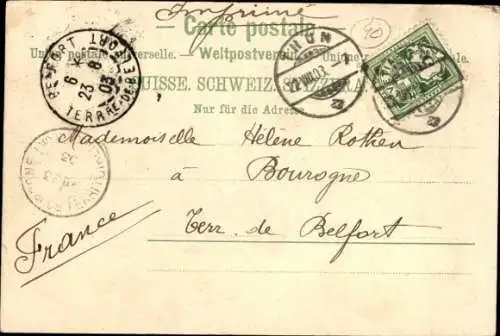 Imprimé
Carte postale.
Weltpostverein.
SUISSE. SCHWEIZ. SVIZZERA.
Nur für die Adresse.
BELFORT
6
23 8
03
TERRE-DE-BELFORT
THUN
22.VIII.03
10
Mademoiselle Hélène Rothen
à
Bourogne
Terr. de Belfort
France